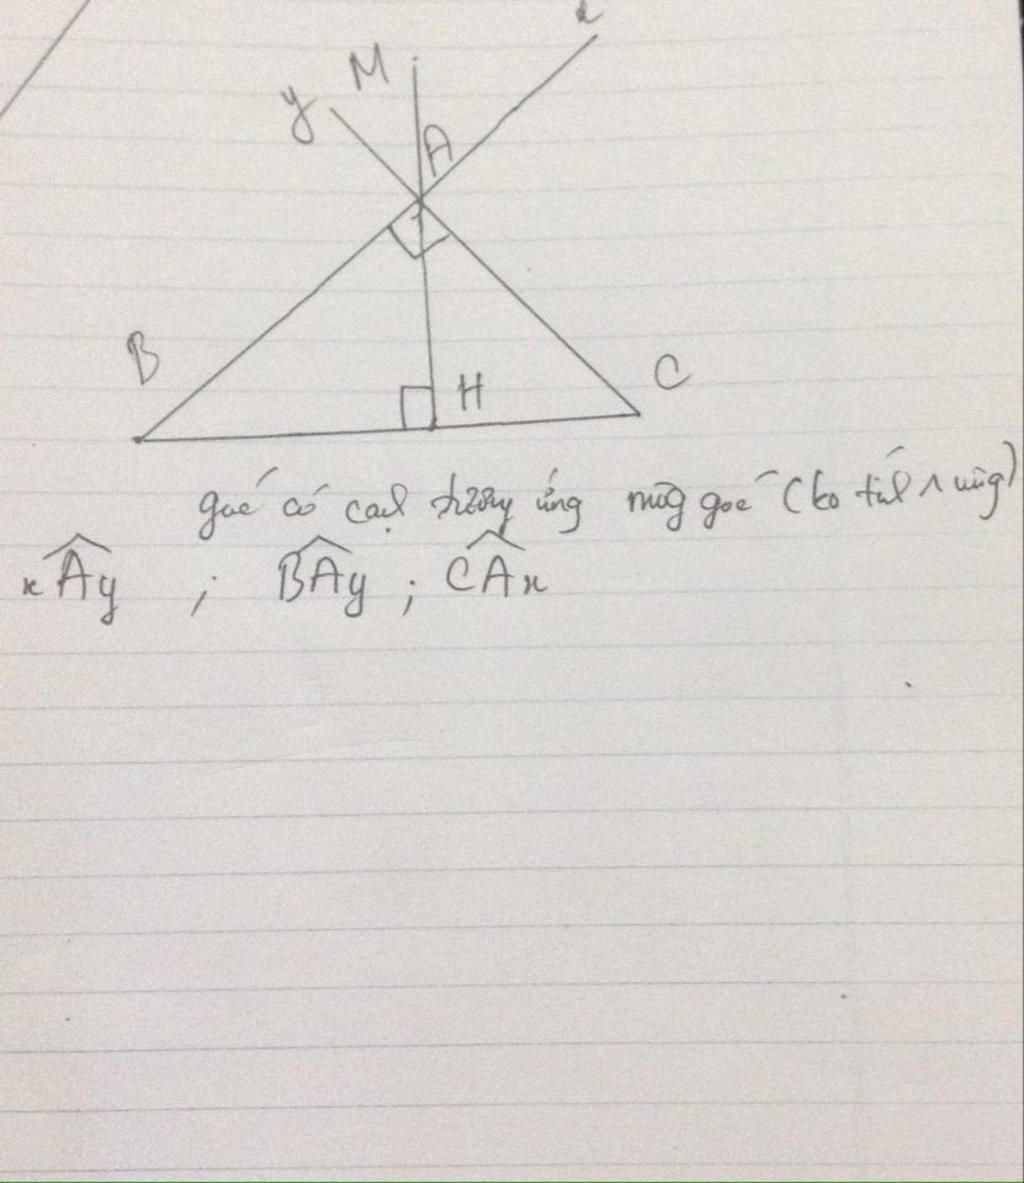 x
M
y
A
B
H
C
góc có cạnh tương ứng vuông góc (ko tính ^ vuông)
xAy ; BAy ; CAx